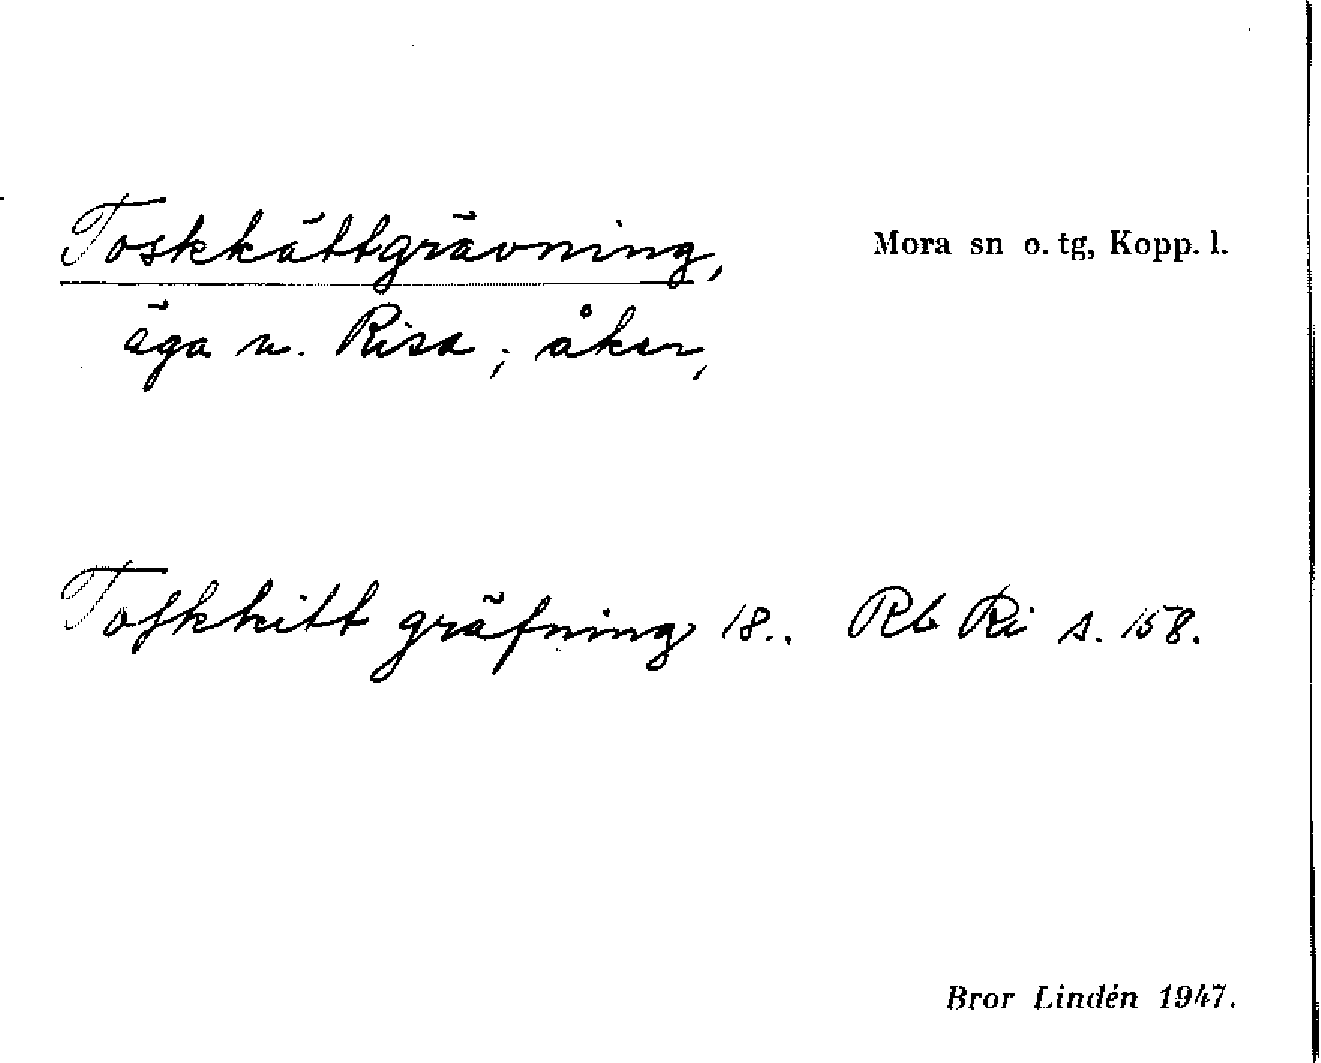 Toskkättgrävning,
Mora sn o. tg, Kopp. l.
äga u. Risa; åker,
Tofkkitt gräfning 18.. Rb Ri s. 158.
Bror Lindén 1947.